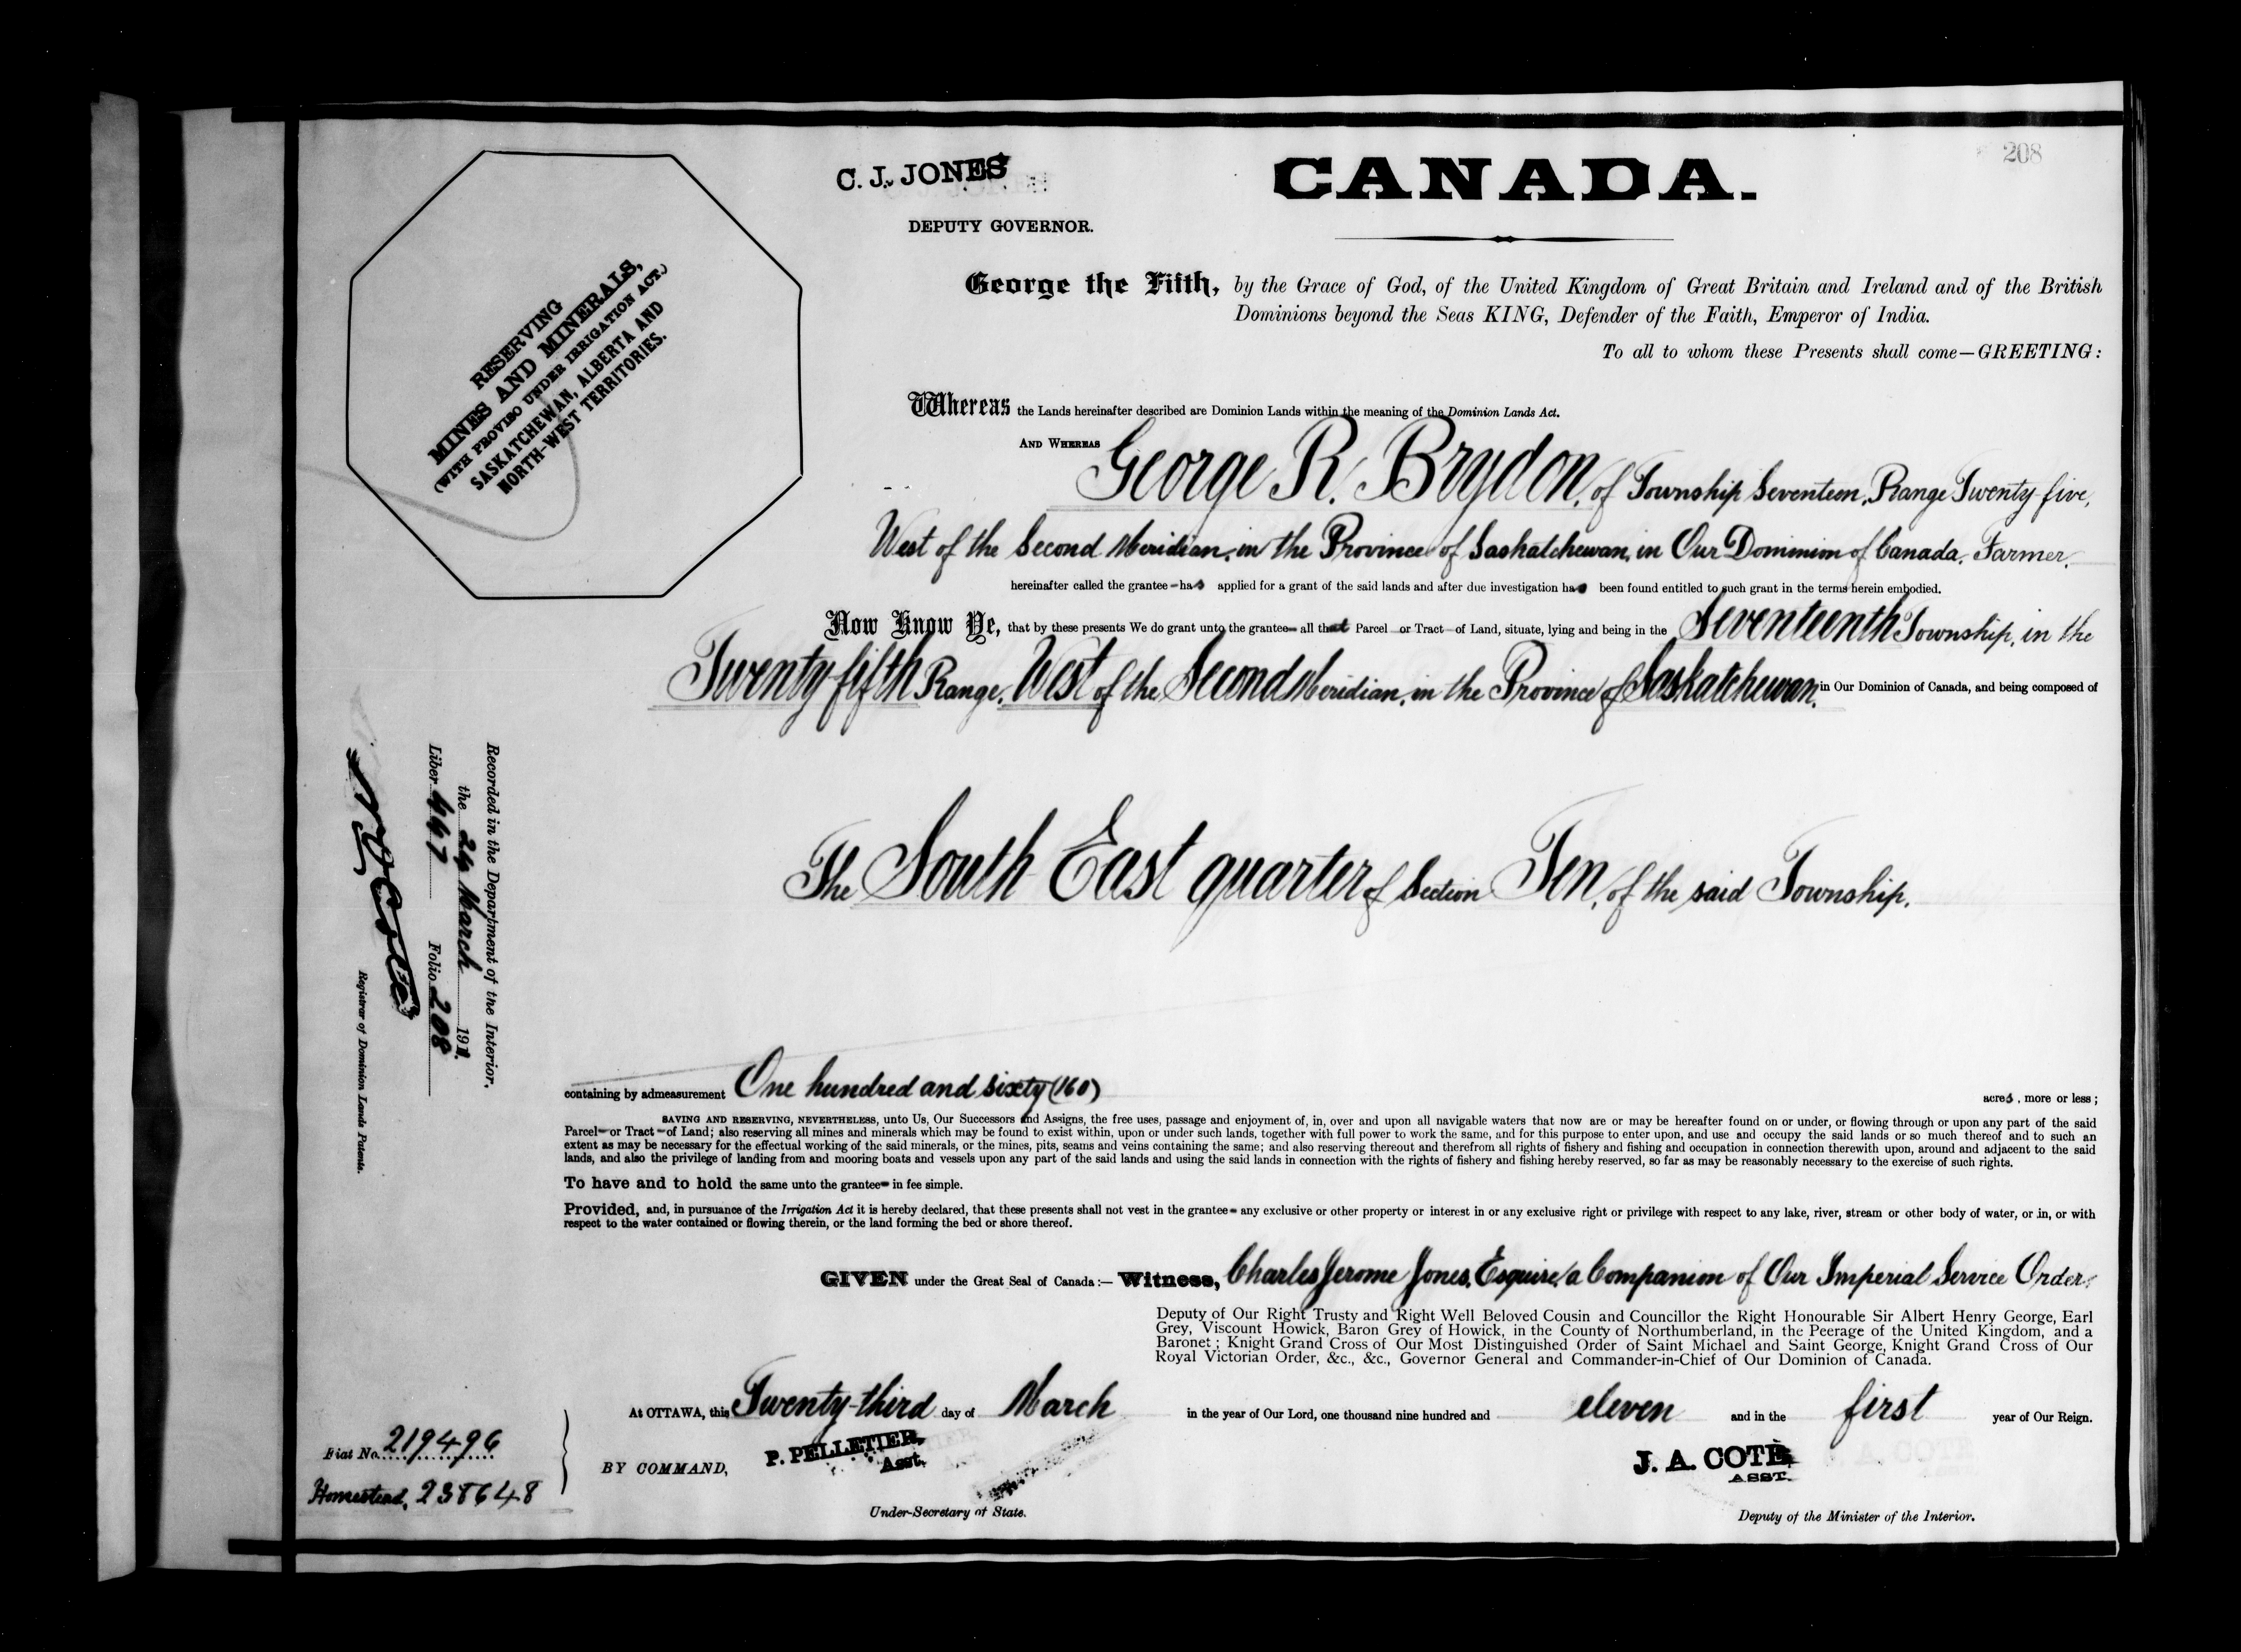 208
C. J. JONES
DEPUTY GOVERNOR.
CANADA.
RESERVING
MINES AND MINERALS,
(WITH PROVISO UNDER IRRIGATION ACT.)
SASKATCHEWAN, ALBERTA AND
NORTH-WEST TERRITORIES.
George the Fifth, by the Grace of God, of the United Kingdom of Great Britain and Ireland and of the British
Dominions beyond the Seas KING, Defender of the Faith, Emperor of India.
To all to whom these Presents shall come—GREETING:
Whereas the Lands hereinafter described are Dominion Lands within the meaning of the Dominion Lands Act.
AND WHEREAS George R. Brydon, of Township Seventeen, Range Twenty-five,
West of the Second Meridian, in the Province of Saskatchewan, in Our Dominion of Canada, Farmer,
hereinafter called the grantee has applied for a grant of the said lands and after due investigation has been found entitled to such grant in the terms herein embodied.
Now Know Ye, that by these presents We do grant unto the grantee all that Parcel or Tract of Land, situate, lying and being in the Seventeenth Township, in the
Twenty fifth Range, West of the Second Meridian, in the Province of Saskatchewan, in Our Dominion of Canada, and being composed of
The South East quarter of Section Ten, of the said Township.
Recorded in the Department of the Interior,
the 29 March 1911.
Liber 447 Folio 208
Registrar of Dominion Lands Patents.
containing by admeasurement One hundred and sixty (160) acres, more or less;
SAVING AND RESERVING, NEVERTHELESS, unto Us, Our Successors and Assigns, the free uses, passage and enjoyment of, in, over and upon all navigable waters that now are or may be hereafter found on or under, or flowing through or upon any part of the said
Parcel or Tract of Land; also reserving all mines and minerals which may be found to exist within, upon or under such lands, together with full power to work the same, and for this purpose to enter upon, and use and occupy the said lands or so much thereof and to such an
extent as may be necessary for the effectual working of the said minerals, or the mines, pits, seams and veins containing the same; and also reserving thereout and therefrom all rights of fishery and fishing and occupation in connection therewith upon, around and adjacent to the said
lands, and also the privilege of landing from and mooring boats and vessels upon any part of the said lands and using the said lands in connection with the rights of fishery and fishing hereby reserved, so far as may be reasonably necessary to the exercise of such rights.
To have and to hold the same unto the grantee in fee simple.
Provided, and, in pursuance of the Irrigation Act it is hereby declared, that these presents shall not vest in the grantee any exclusive or other property or interest in or any exclusive right or privilege with respect to any lake, river, stream or other body of water, or in, or with
respect to the water contained or flowing therein, or the land forming the bed or shore thereof.
GIVEN under the Great Seal of Canada:— Witness, Charles Jerome Jones, Esquire, a Companion of Our Imperial Service Order,
Deputy of Our Right Trusty and Right Well Beloved Cousin and Councillor the Right Honourable Sir Albert Henry George, Earl
Grey, Viscount Howick, Baron Grey of Howick, in the County of Northumberland, in the Peerage of the United Kingdom, and a
Baronet; Knight Grand Cross of Our Most Distinguished Order of Saint Michael and Saint George, Knight Grand Cross of Our
Royal Victorian Order, &c., &c., Governor General and Commander-in-Chief of Our Dominion of Canada.
At OTTAWA, this Twenty-third day of March in the year of Our Lord, one thousand nine hundred and eleven and in the first year of Our Reign.
Fiat No. 219496
Homestead, 238648
BY COMMAND,
P. PELLETIER,
Asst.
Under-Secretary of State.
J. A. COTE
ASST.
Deputy of the Minister of the Interior.